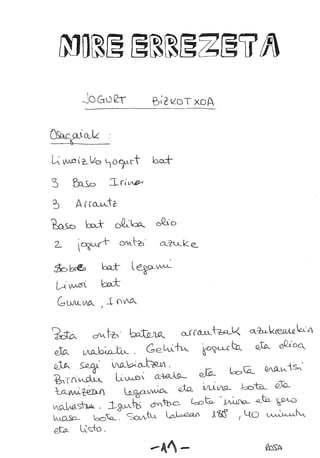 NIRE ERREZETA
JOGURT BIZKOTXOA
Osagaiak :
Limoizko yogurt bat
3 Baso Irina
3 Arrautz
Baso bat oliba olio
2 jogurt ontzi azuke
Sobre bat legami
Limoi bat
Gurina, Irina
Bota ontzi batera arrautzak azukrearekin
eta irabiatu. Gehitu jogurta eta olioa
eta segi irabiatzen.
Birrindu limoi azala eta bota erantsi
tamizean legamia eta irina bota eta
nahastu. Igurtzi ontzia bota irina eta gero
masa bota. Sartu labean 180°, 40 minutu
eta listo.
-11-
ROSA